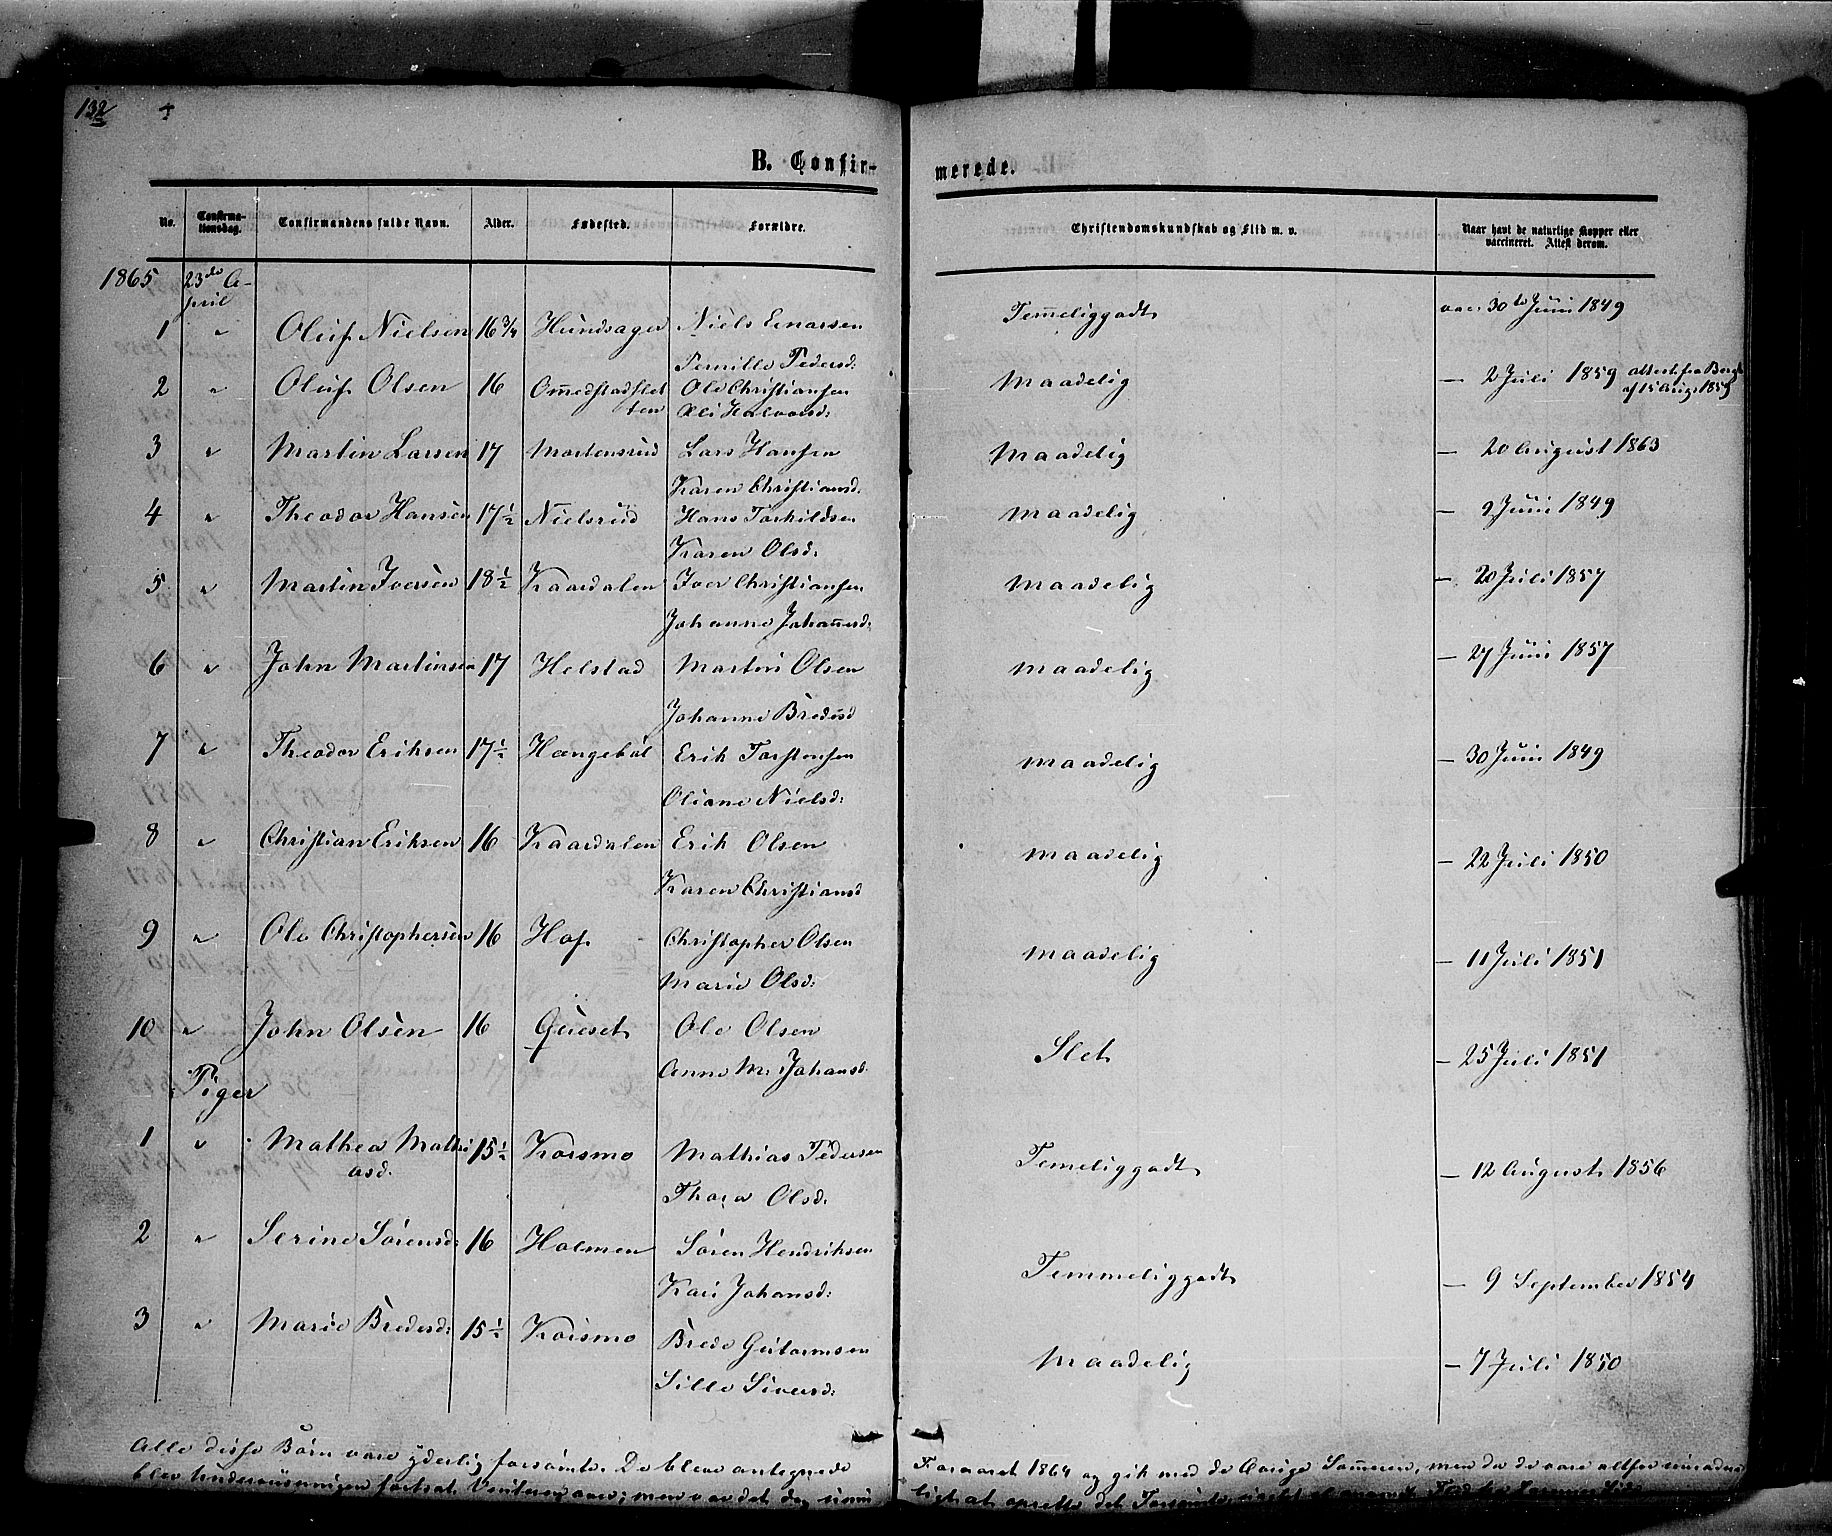 132 4
B. Confirmerede.
No. Confirmationsdag. Confirmandens fulde Navn. Alder. Fødested. Forældre. Christendomskundskab og Flid m. v. Naar havt de naturlige Kopper eller vaccineret. Attest derom.
1865 23de April
1 " Oluf Nielsen 16 3/4 Hundsager Niels Enarsen Temmeliggodt vac. 30te Juni 1849
Pernille Pedersd:
2 " Oluf Olsen 16 Ole Christiansen Maadelig — 2 Juli 1859 attest fra
af 15 Aug. 1859
Halvorsd:
3 " Martin Larsen 17 Mortensrud Lars Hansen Maadelig — 20 August 1863
Karen Christiansd:
4 " Theodor Hansen 17 1/2 Nielsrud Hans Torkildsen maadelig — 9 Juni 1849
Karen Olsd:
5 " Martin Iversen 18 1/2 Kaardalen Iver Christiansen maadelig — 20 Juli 1857
Johanne Johannesd:
6 " John Martinsen 17 Helstad Martin Olsen maadelig — 27 Juni 1857
Johanne Bredesd
7 " Theodor Eriksen 17 1/2 Hængebøl Erik Torstensen maadelig — 30 Juni 1849
Oliane Nielsd:
8 " Christian Eriksen 16 Kaardalen Erik Olsen maadelig — 22 Juli 1850
Karen Christiansd
9 " Ole Christophersen 16 Hof Christopher Olsen maadelig — 11 Juli 1851
Marie Olsd:
10 " John Olsen 16 Ole Olsen Slet — 25 Juli 1851
Anne M. Johansd.
Piger
1 " Mathea Mathiasd. 15 1/2 Korsmo Mathias Pedersen Temeliggodt — 12 August 1856
Thora Olsd:
2 " Serine Sørensd: 16 Holmen Søren Hendriksen Temmeliggodt — 9 September 1854
Kari Johansd:
3 " Marie Bredesd: 15 1/2 Korsmo Brede Gutormsen Maadelig — 7 Juli 1850
Sille Siversd:
Alle disse Børn vare yderlig forsømte. De bleve antegnede Foraaret 1864 og gik med de Øvrige Sommeren, men da de vare altfor
blev Underviisningen fortsat Vinteren over; men var det dog